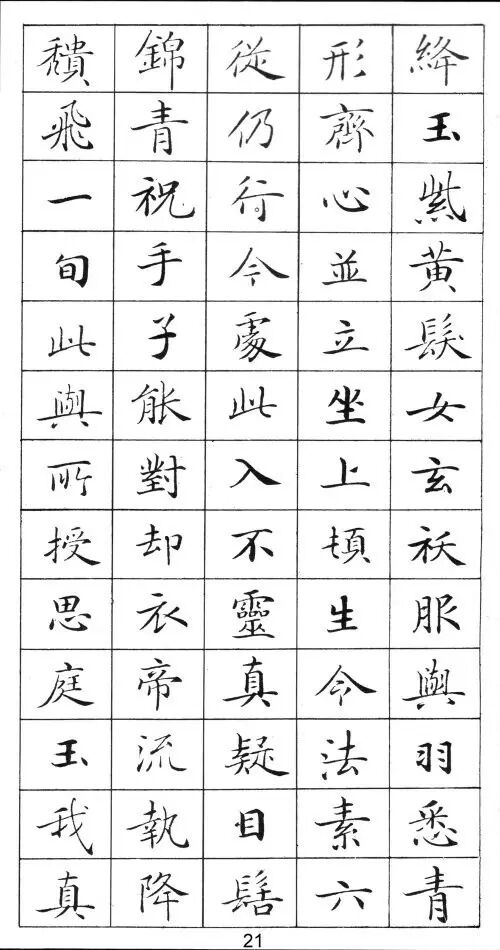 絳玉紫黃髮女玄服與羽悉青
形齊心並立坐上頓生今法素六
從仍行今處此入不靈真疑目髻
錦青祝手子能對却衣帝流執降
穨飛一旬此與所授思庭玉我真
21